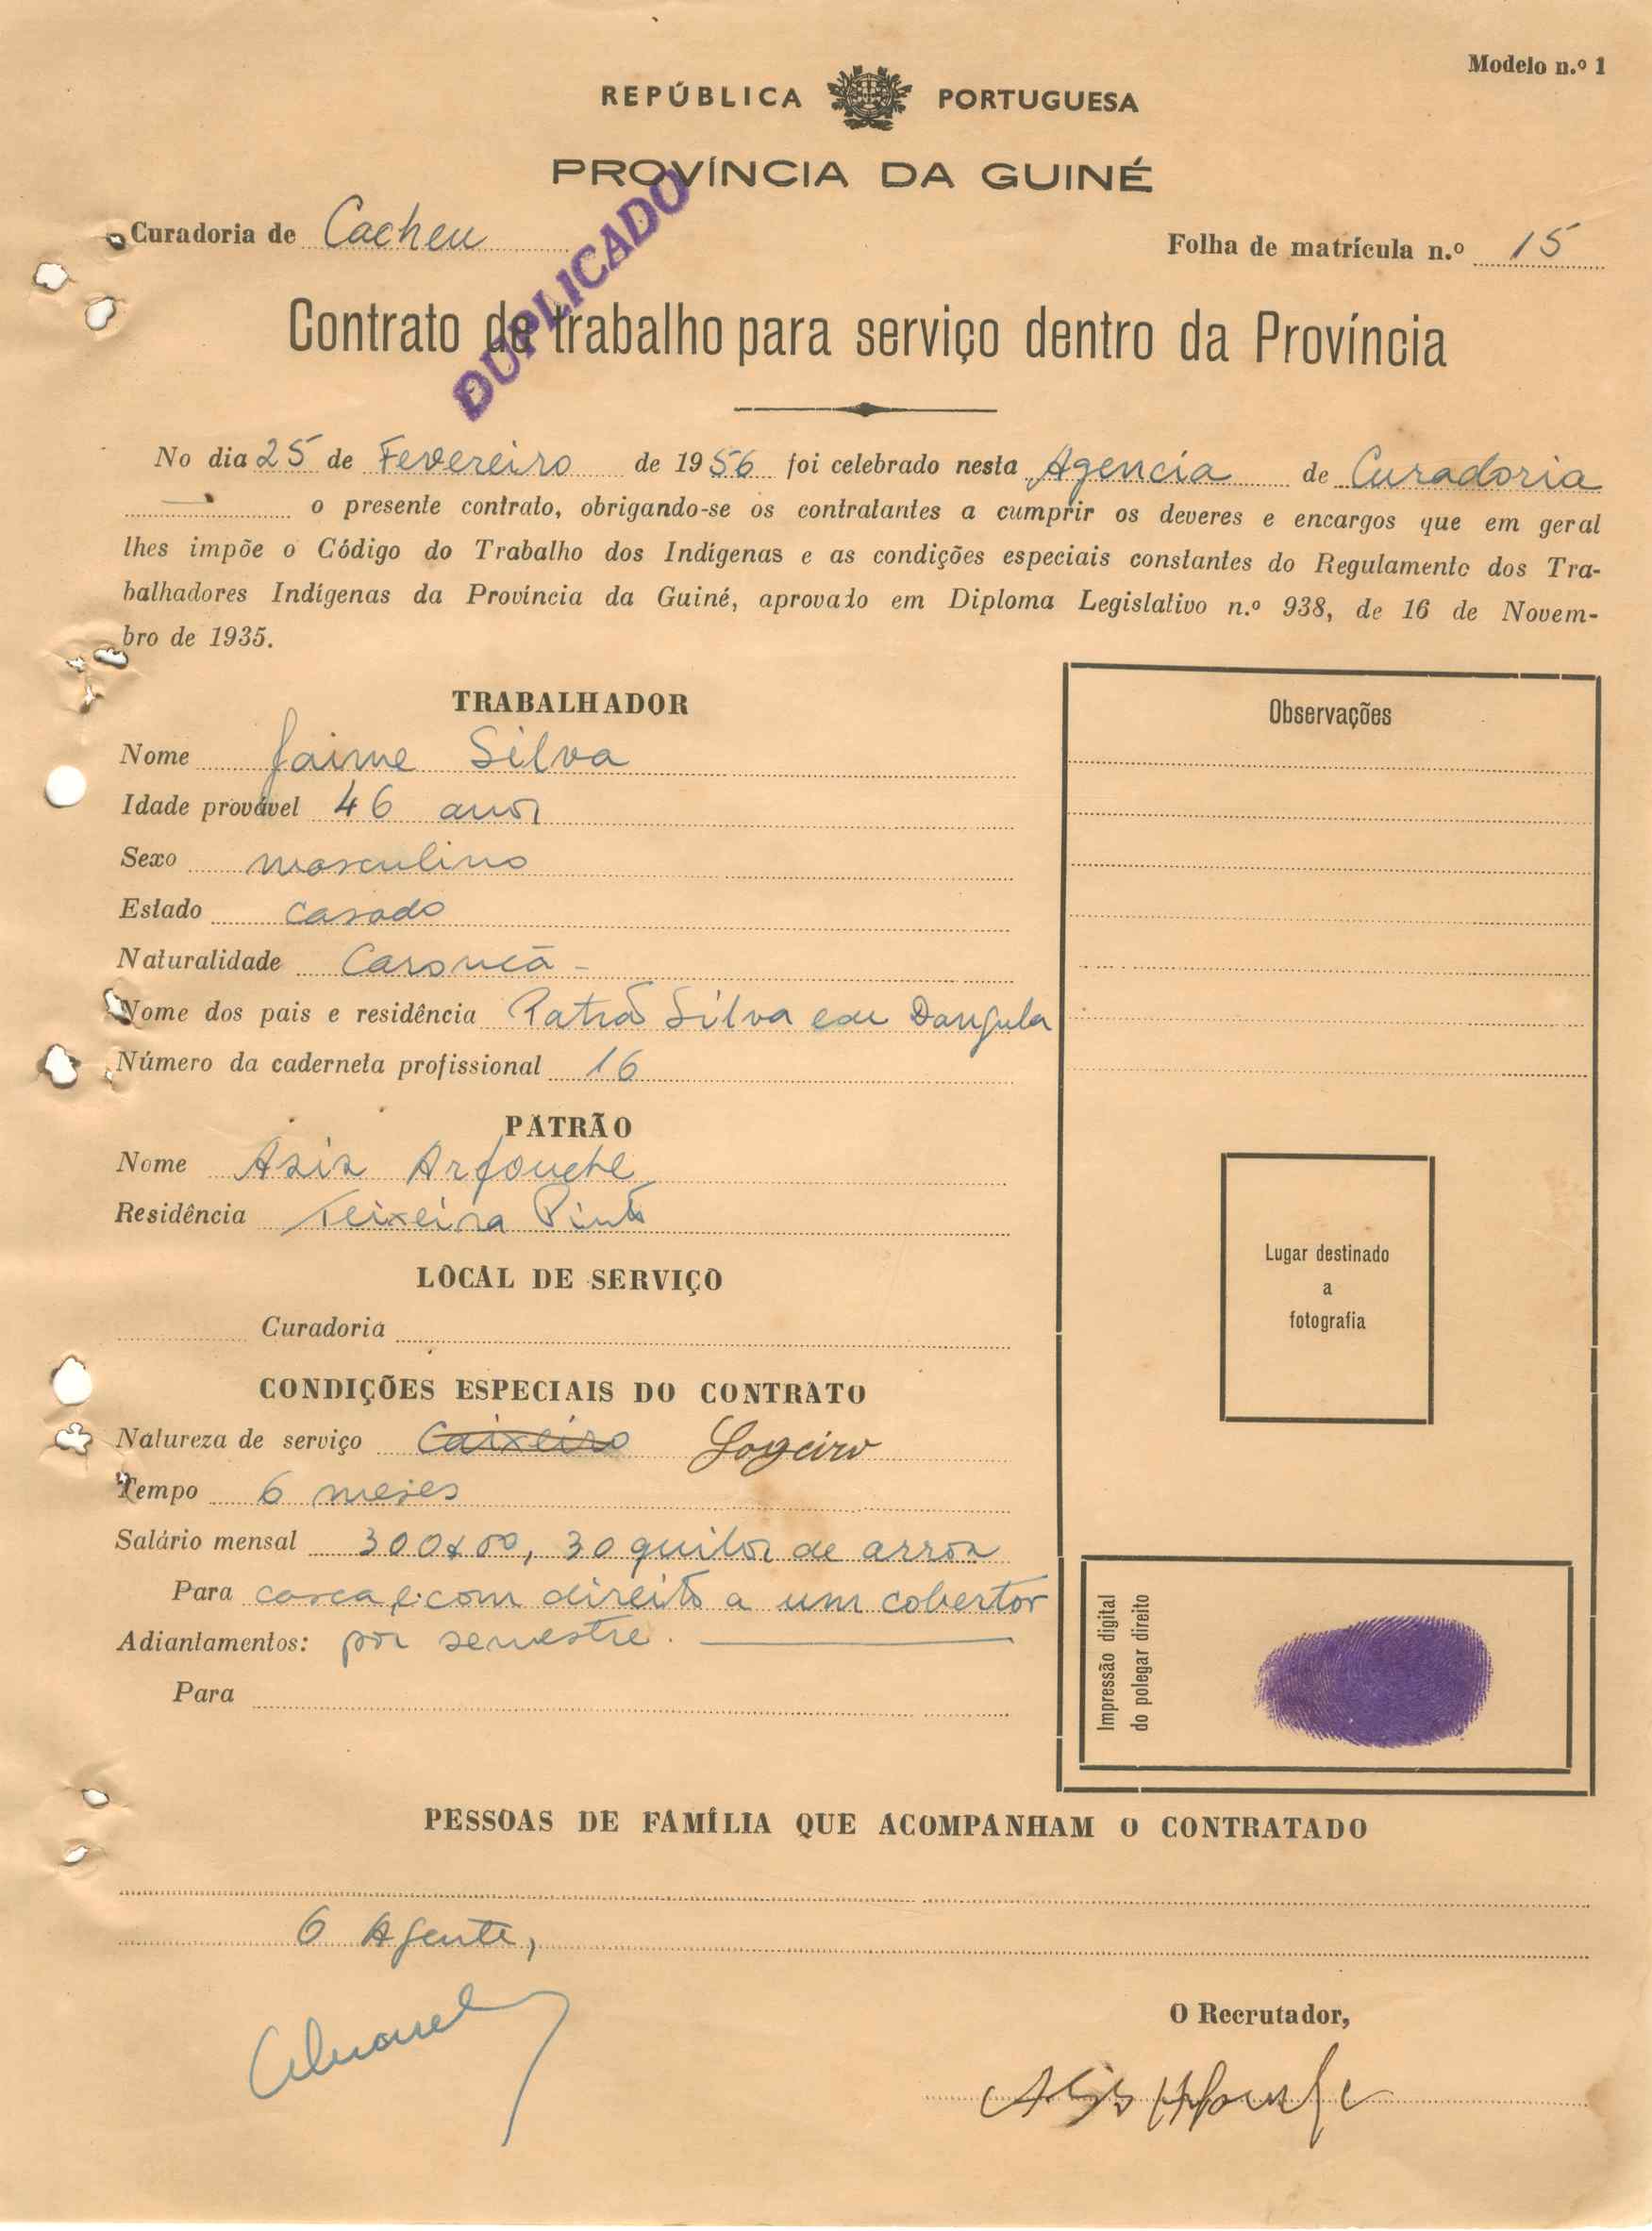 Modelo n.º 1
REPÚBLICA PORTUGUESA
PROVÍNCIA DA GUINÉ
DUPLICADO
Curadoria de Cacheu
Folha de matrícula n.º 15
Contrato de trabalho para serviço dentro da Província
No dia 25 de Fevereiro de 1956 foi celebrado nesta Agencia de Curadoria
o presente contrato, obrigando-se os contratantes a cumprir os deveres e encargos que em geral
lhes impõe o Código do Trabalho dos Indígenas e as condições especiais constantes do Regulamento dos Tra-
balhadores Indígenas da Província da Guiné, aprovado em Diploma Legislativo n.º 938, de 16 de Novem-
bro de 1935.
TRABALHADOR
Nome Jaime Silva
Idade provável 46 anos
Sexo masculino
Estado casado
Naturalidade
Nome dos pais e residência Silva em
Número da caderneta profissional 16
PATRÃO
Nome Asis
Residência Teixeira Pinto
LOCAL DE SERVIÇO
Curadoria
CONDIÇÕES ESPECIAIS DO CONTRATO
Natureza de serviço Caixeiro
Tempo 6 meses
Salário mensal 300$00, 30 quilos de arroz
Para casca, e com direito a um cobertor
Adiantamentos: por semestre.
Para
Observações
Lugar destinado
a
fotografia
Impressão digital
do polegar direito
PESSOAS DE FAMÍLIA QUE ACOMPANHAM O CONTRATADO
O Agente,
O Recrutador,